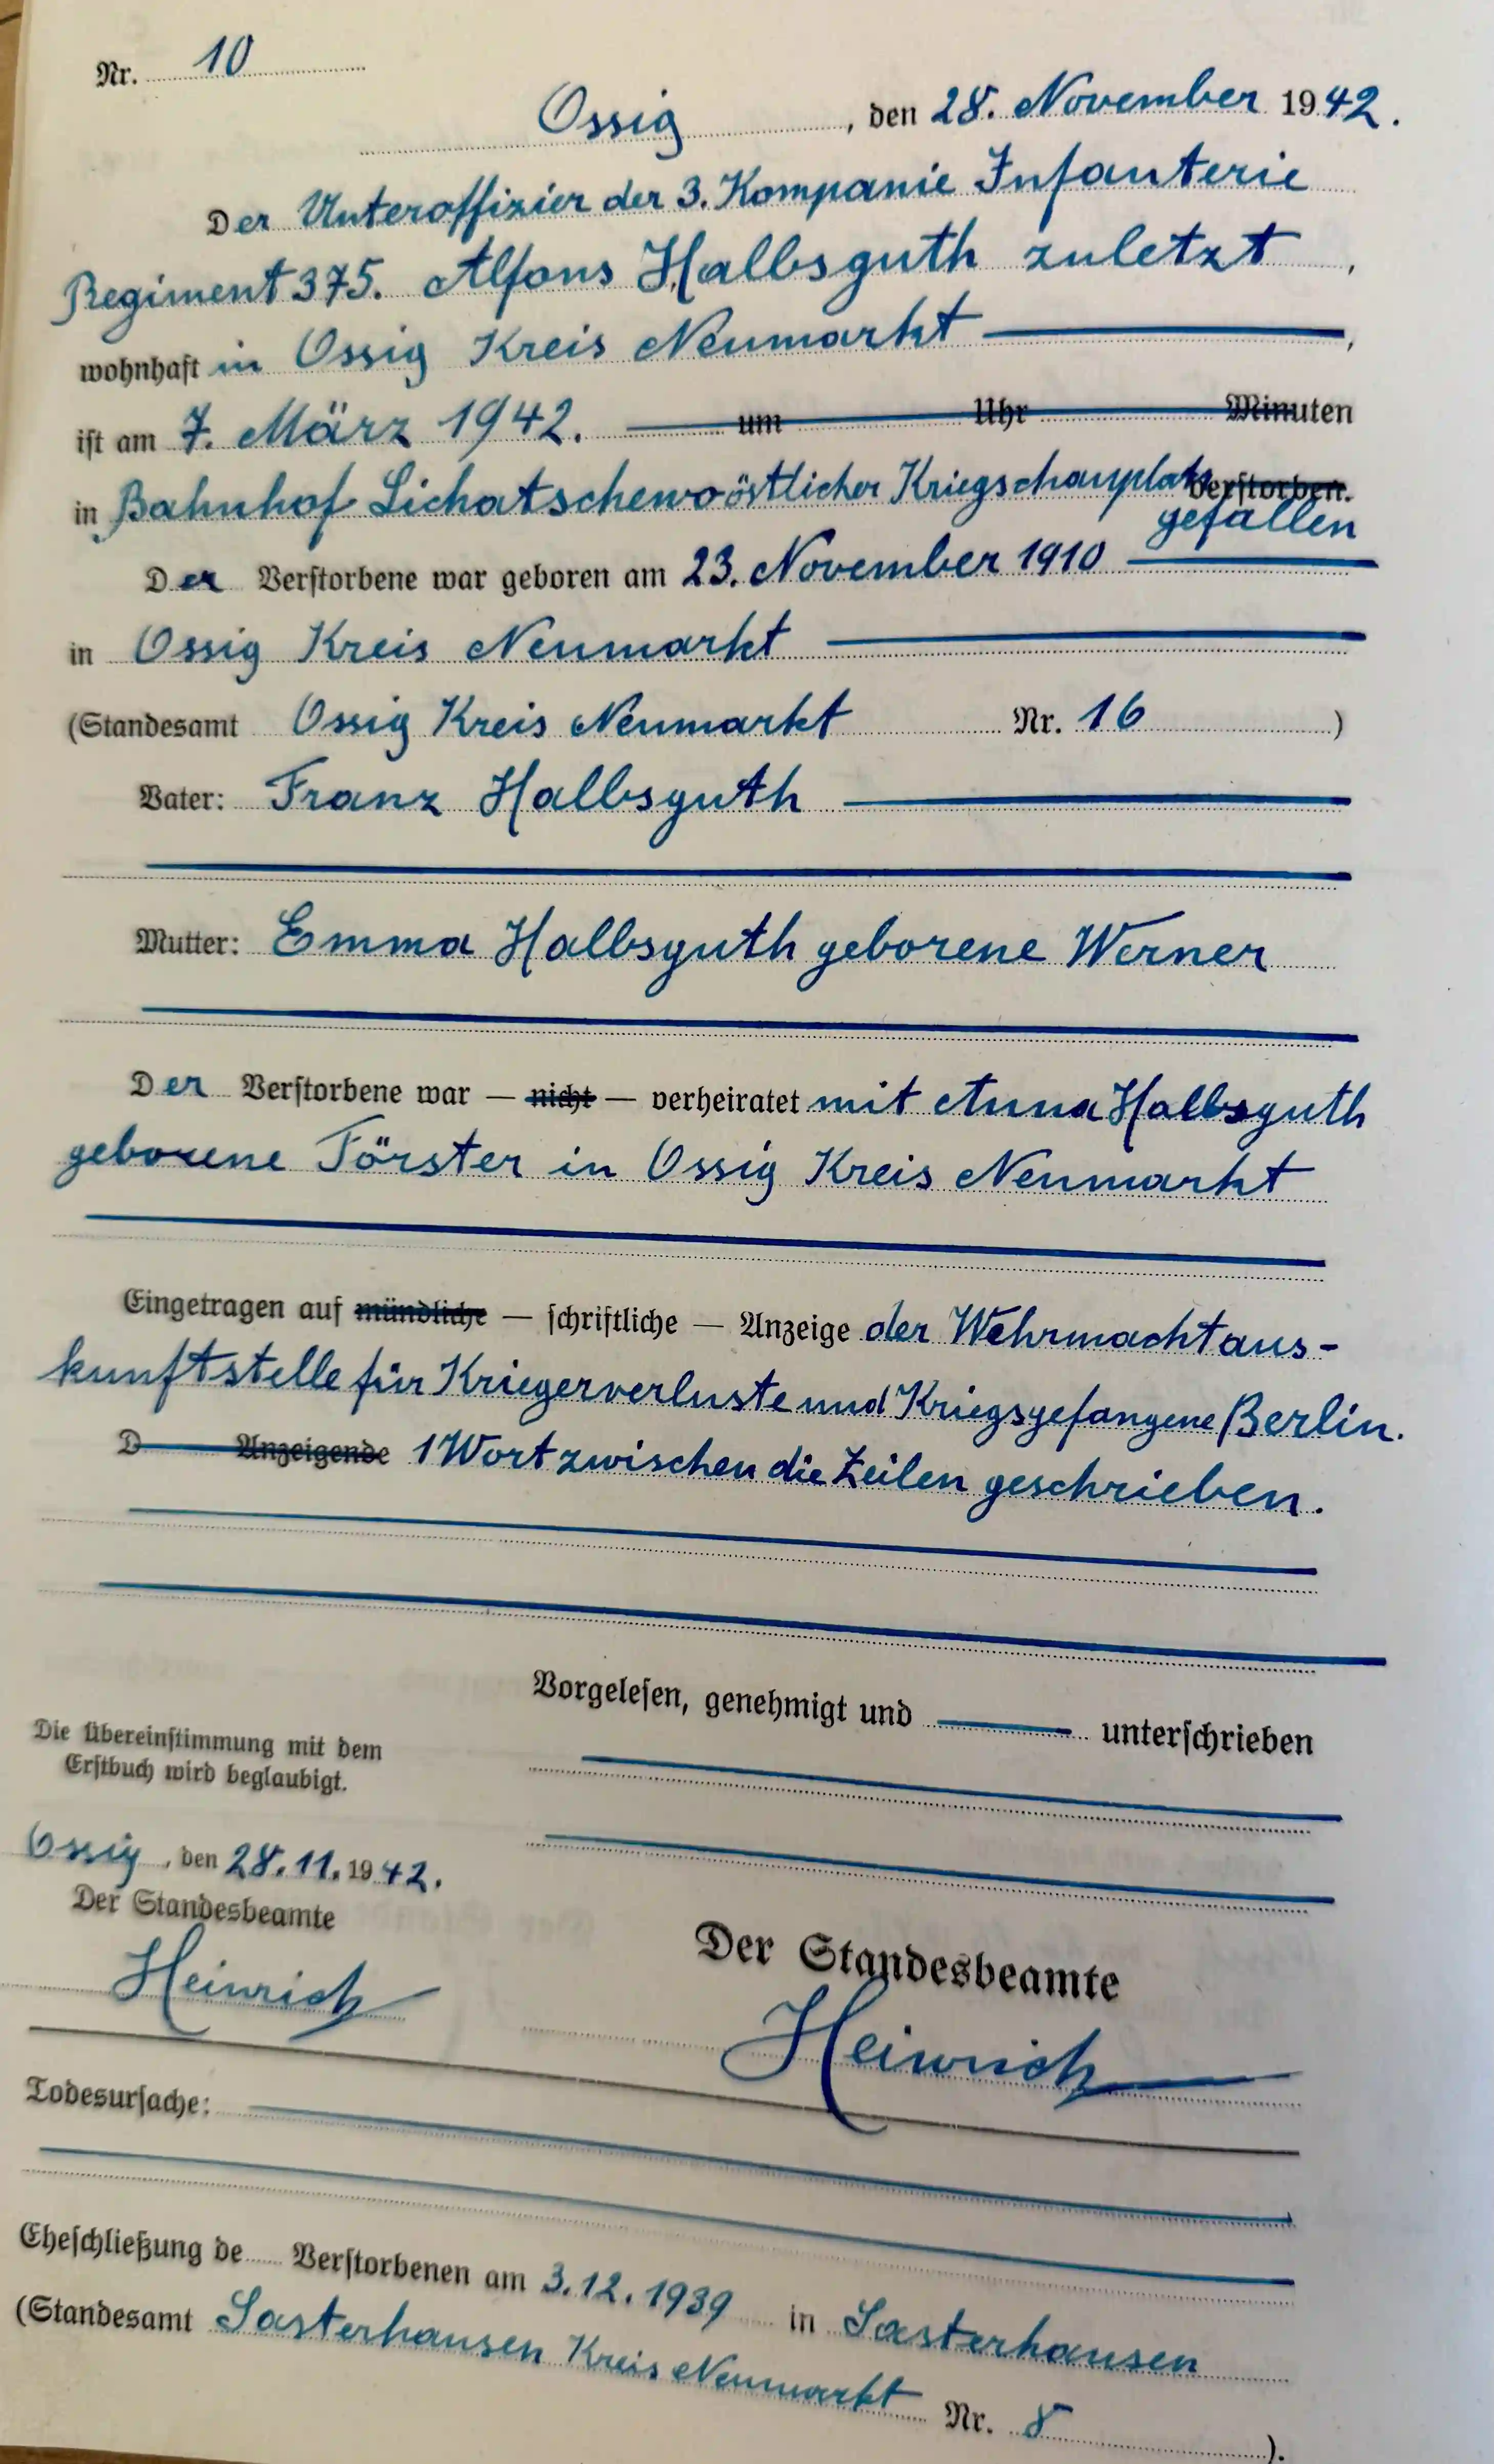 Nr. 10
Ossig, den 28. November 1942.
Der Unteroffizier der 3. Kompanie Infanterie
Regiment 375. Alfons Halbsguth zuletzt,
wohnhaft in Ossig Kreis Neumarkt,
ist am 7. März 1942. um Uhr Minuten
in Bahnhof Lichatschewo östlicher Kriegschauplatz verstorben.
gefallen
Der Verstorbene war geboren am 23. November 1910
in Ossig Kreis Neumarkt
(Standesamt Ossig Kreis Neumarkt Nr. 16)
Vater: Franz Halbsguth
Mutter: Emma Halbsguth geborene Werner
Der Verstorbene war — nicht — verheiratet mit Anna Halbsguth
geborene Förster in Ossig Kreis Neumarkt
Eingetragen auf mündliche — schriftliche — Anzeige der Wehrmachtaus-
kunftstelle für Kriegerverluste und Kriegsgefangene Berlin.
D Anzeigende 1 Wort zwischen die Zeilen geschrieben.
Vorgelesen, genehmigt und unterschrieben
Die Übereinstimmung mit dem
Erstbuch wird beglaubigt.
Ossig, den 28.11.1942.
Der Standesbeamte
Heinrich
Der Standesbeamte
Heinrich
Todesursache:
Eheschließung de Verstorbenen am 3.12.1939 in Sasterhausen
(Standesamt Sasterhausen Kreis Neumarkt Nr. 8).